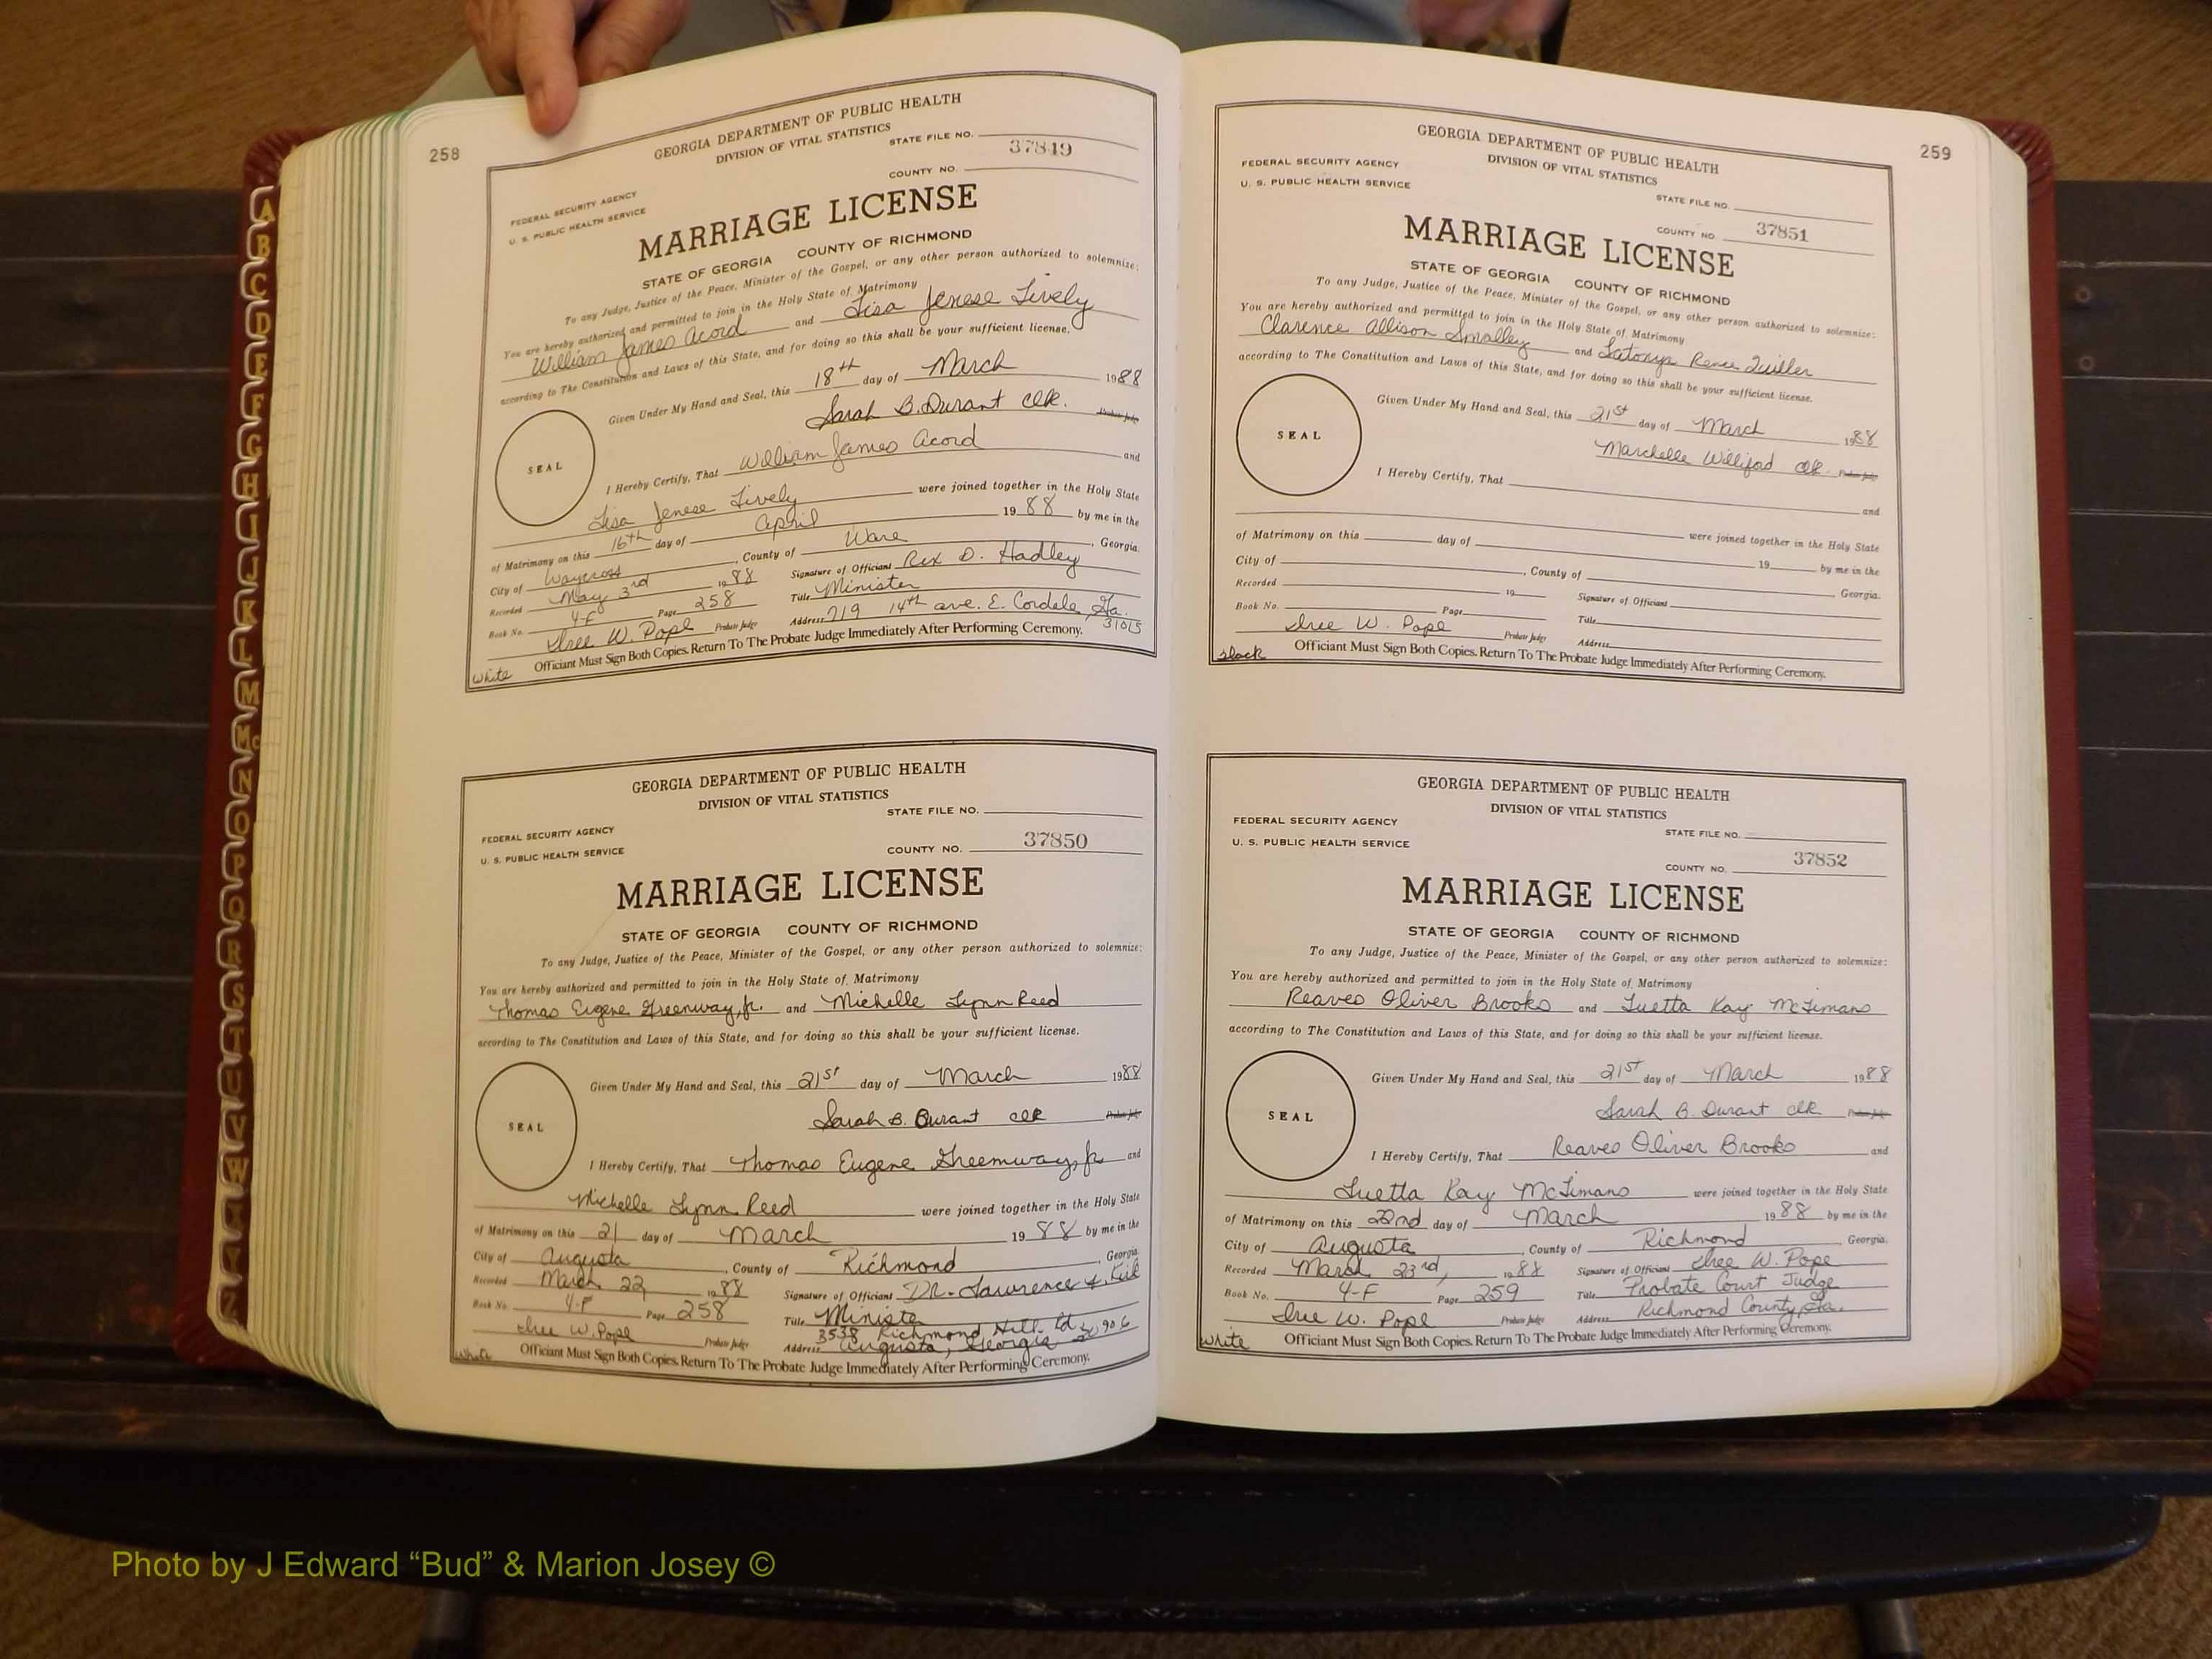 258
GEORGIA DEPARTMENT OF PUBLIC HEALTH
DIVISION OF VITAL STATISTICS
STATE FILE NO.
37849
COUNTY NO.
FEDERAL SECURITY AGENCY
U. S. PUBLIC HEALTH SERVICE
MARRIAGE LICENSE
STATE OF GEORGIA COUNTY OF RICHMOND
To any Judge, Justice of the Peace, Minister of the Gospel, or any other person authorized to solemnize:
You are hereby authorized and permitted to join in the Holy State of Matrimony
William James Acord and Lisa Jenese Lively
according to The Constitution and Laws of this State, and for doing so this shall be your sufficient license.
Given Under My Hand and Seal, this 18th day of March 1988
Sarah B. Durant clk. Probate Judge
SEAL
I Hereby Certify, That William James Acord and
Lisa Jenese Lively were joined together in the Holy State
of Matrimony on this 16th day of April 1988 by me in the
City of Waycross, County of Ware, Georgia.
Recorded May 3rd 1988 Signature of Officiant Rex D. Hadley
Book No. 4-F Page 258 Title Minister
W. Pope Probate Judge Address 719 14th ave. E. Cordele, Ga. 31015
Officiant Must Sign Both Copies. Return To The Probate Judge Immediately After Performing Ceremony.
White
GEORGIA DEPARTMENT OF PUBLIC HEALTH
DIVISION OF VITAL STATISTICS
STATE FILE NO.
FEDERAL SECURITY AGENCY
U. S. PUBLIC HEALTH SERVICE
COUNTY NO. 37850
MARRIAGE LICENSE
STATE OF GEORGIA COUNTY OF RICHMOND
To any Judge, Justice of the Peace, Minister of the Gospel, or any other person authorized to solemnize:
You are hereby authorized and permitted to join in the Holy State of Matrimony
Thomas Eugene Greenway, Jr. and Michelle Lynn Reed
according to The Constitution and Laws of this State, and for doing so this shall be your sufficient license.
Given Under My Hand and Seal, this 21st day of March 1988
Sarah B. Durant clk Probate Judge
SEAL
I Hereby Certify, That Thomas Eugene Greenway, Jr and
Michelle Lynn Reed were joined together in the Holy State
of Matrimony on this 21 day of March 1988 by me in the
City of Augusta, County of Richmond, Georgia.
Recorded March 22 1988 Signature of Officiant DR. Lawrence
Book No. 4-F Page 258 Title Minister
W. Pope Probate Judge Address 3538 Richmond Hill Rd 30906
Augusta, Georgia
Officiant Must Sign Both Copies. Return To The Probate Judge Immediately After Performing Ceremony.
White
259
GEORGIA DEPARTMENT OF PUBLIC HEALTH
DIVISION OF VITAL STATISTICS
FEDERAL SECURITY AGENCY
U. S. PUBLIC HEALTH SERVICE
STATE FILE NO.
COUNTY NO. 37851
MARRIAGE LICENSE
STATE OF GEORGIA COUNTY OF RICHMOND
To any Judge, Justice of the Peace, Minister of the Gospel, or any other person authorized to solemnize:
You are hereby authorized and permitted to join in the Holy State of Matrimony
Clarence Allison Smalley and Latonya Renee Quiller
according to The Constitution and Laws of this State, and for doing so this shall be your sufficient license.
Given Under My Hand and Seal, this 21st day of March 1988
Marchelle Williford clk Probate Judge
SEAL
I Hereby Certify, That
and
were joined together in the Holy State
of Matrimony on this day of 19 by me in the
City of , County of Georgia.
Recorded 19 Signature of Officiant
Book No. Page Title
W. Pope Probate Judge Address
Officiant Must Sign Both Copies. Return To The Probate Judge Immediately After Performing Ceremony.
Black
GEORGIA DEPARTMENT OF PUBLIC HEALTH
DIVISION OF VITAL STATISTICS
FEDERAL SECURITY AGENCY
STATE FILE NO.
U. S. PUBLIC HEALTH SERVICE
COUNTY NO. 37852
MARRIAGE LICENSE
STATE OF GEORGIA COUNTY OF RICHMOND
To any Judge, Justice of the Peace, Minister of the Gospel, or any other person authorized to solemnize:
You are hereby authorized and permitted to join in the Holy State of Matrimony
Reaves Oliver Brooks and Luetta Kay McLimans
according to The Constitution and Laws of this State, and for doing so this shall be your sufficient license.
Given Under My Hand and Seal, this 21st day of March 1988
Sarah B. Durant clk Probate Judge
SEAL
I Hereby Certify, That Reaves Oliver Brooks and
Luetta Kay McLimans were joined together in the Holy State
of Matrimony on this 22nd day of March 1988 by me in the
City of Augusta, County of Richmond, Georgia.
Recorded March 23rd, 1988 Signature of Officiant W. Pope
Book No. 4-F Page 259 Title Probate Court Judge
W. Pope Probate Judge Address Richmond County, Ga.
Officiant Must Sign Both Copies. Return To The Probate Judge Immediately After Performing Ceremony.
White
A
B
C
D
E
F
G
H
I
J
K
L
M
Mc
N
O
P
Q
R
S
T
U
V
W
Z
Photo by J Edward “Bud” & Marion Josey ©